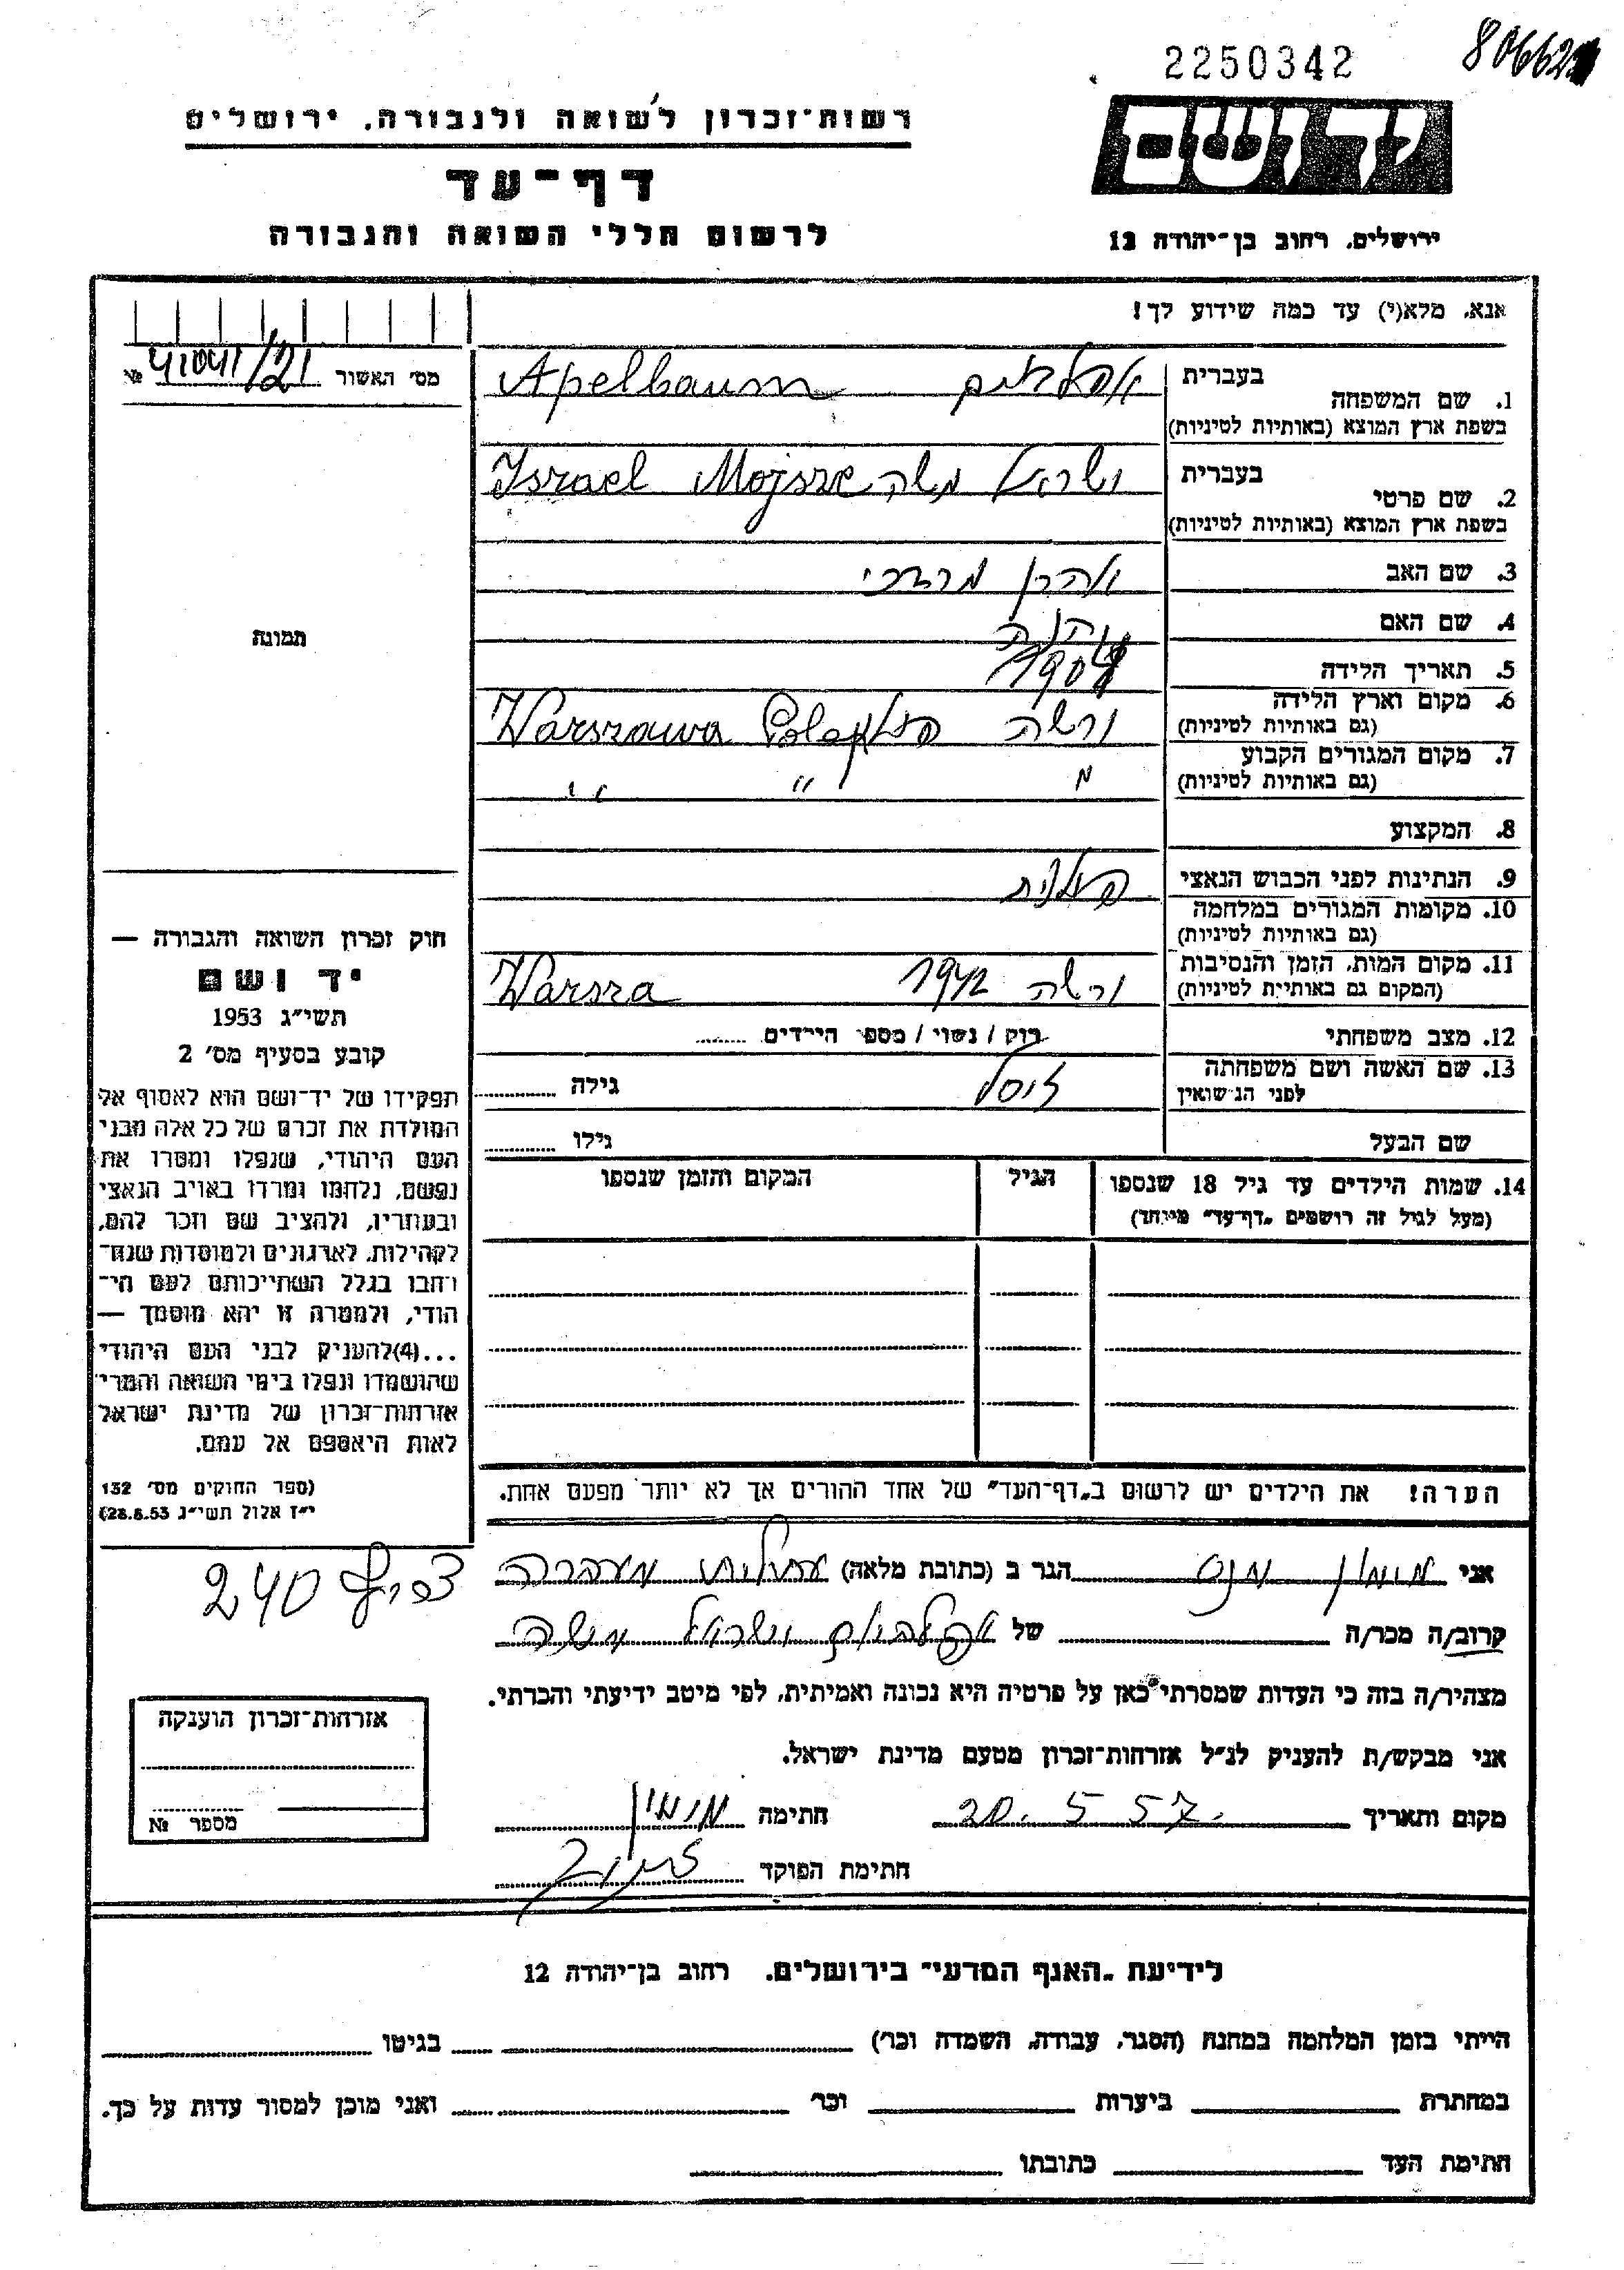 2250342
רשות־זכרון לשואה ולגבורה, ירושלים
יד ושם
דף־עד
לרשום חללי השואה והגבורה
ירושלים, רחוב בן־יהודה 12
אנא, מלא(י) עד כמה שידוע לך!
מס' האשור № 41041/21
1. שם המשפחה בעברית אפלבוים Apelbaum
בשפת ארץ המוצא (באותיות לטיניות)
2. שם פרטי בעברית ישראל משה Israel Mojsze
בשפת ארץ המוצא (באותיות לטיניות)
3. שם האב אהרן מרדכי
4. שם האם
תמונה
5. תאריך הלידה
6. מקום וארץ הלידה ורשה Warszawa
(גם באותיות לטיניות)
7. מקום המגורים הקבוע " " "
(גם באותיות לטיניות)
8. המקצוע
9. הנתינות לפני הכבוש הנאצי פולנית
10. מקומות המגורים במלחמה
(גם באותיות לטיניות)
11. מקום המות, הזמן והנסיבות ורשה 1942 Warsza
(המקום גם באותיות לטיניות)
12. מצב משפחתי רוק / נשוי / מספר הילדים
13. שם האשה ושם משפחתה גילה
לפני הנישואין
שם הבעל גילו
14. שמות הילדים עד גיל 18 שנספו הגיל המקום והזמן שנספו
(מעל לגיל זה רושמים "דף־עד" מיוחד)
חוק זכרון השואה והגבורה —
יד ושם
תשי"ג 1953
קובע בסעיף מס' 2
תפקידו של יד־ושם הוא לאסוף אל
המולדת את זכרם של כל אלה מבני
העם היהודי, שנפלו ומסרו את
נפשם, נלחמו ומרדו באויב הנאצי
ובעוזריו, ולהציב שם וזכר להם,
לקהילות, לארגונים ולמוסדות שנח־
רבו בגלל השתייכותם לעם הי־
הודי, ולמטרה זו יהא מוסמך —
...(4)להעניק לבני העם היהודי
שהושמדו ונפלו בימי השואה והמרי
אזרחות־זכרון של מדינת ישראל
לאות היאספם אל עמם.
(ספר החוקים מס' 132
י"ז אלול תשי"ג 28.8.53)
הערה! את הילדים יש לרשום ב"דף־העד" של אחד ההורים אך לא יותר מפעם אחת.
אני הגר ב (כתובת מלאה) עתלית מעברה צריף 240
קרוב/ה מכר/ה של אפלבוים ישראל משה
מצהיר/ה בזה כי העדות שמסרתי כאן על פרטיה היא נכונה ואמיתית, לפי מיטב ידיעתי והכרתי.
אני מבקש/ת להעניק לנ"ל אזרחות־זכרון מטעם מדינת ישראל.
מקום ותאריך 20. 5 57. חתימה
חתימת הפוקד
אזרחות־זכרון הוענקה
מספר №
לידיעת "האגף המדעי" בירושלים, רחוב בן־יהודה 12
הייתי בזמן המלחמה במחנה (הסגר, עבודה, השמדה וכו') בגיטו
במחתרת ביערות וכו' ואני מוכן למסור עדות על כך.
חתימת העד כתובתו